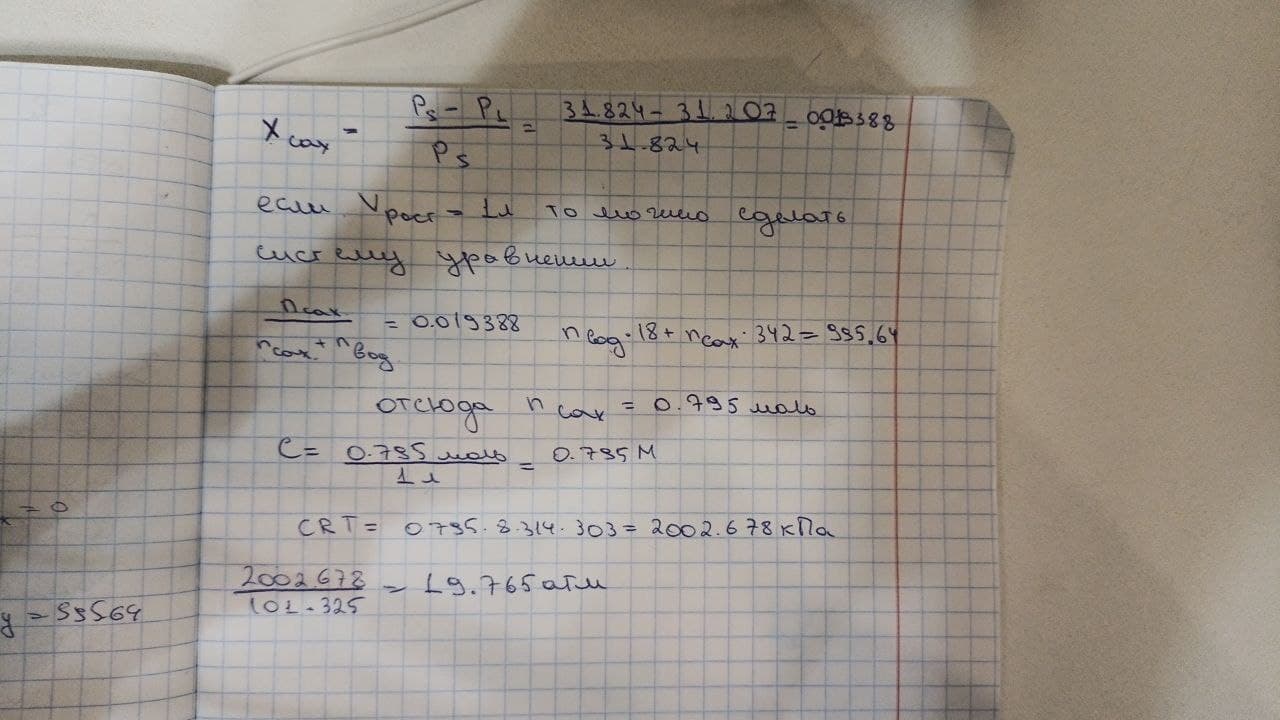 x = 0
y = 99564
Xсах = (Ps - P1)/Ps = (31.824 - 31.207)/31.824 = 0.019388
если Vраст = 1л то можно сделать
систему уравнении.
nсах/(nсах + nвод) = 0.019388 nвод·18 + nсах·342 = 995.64
отсюда nсах = 0.795 моль
C = 0.795 моль/1л = 0.795 M
CRT = 0.795·8.314·303 = 2002.678 кПа
2002678/101.325 = 19.765 атм